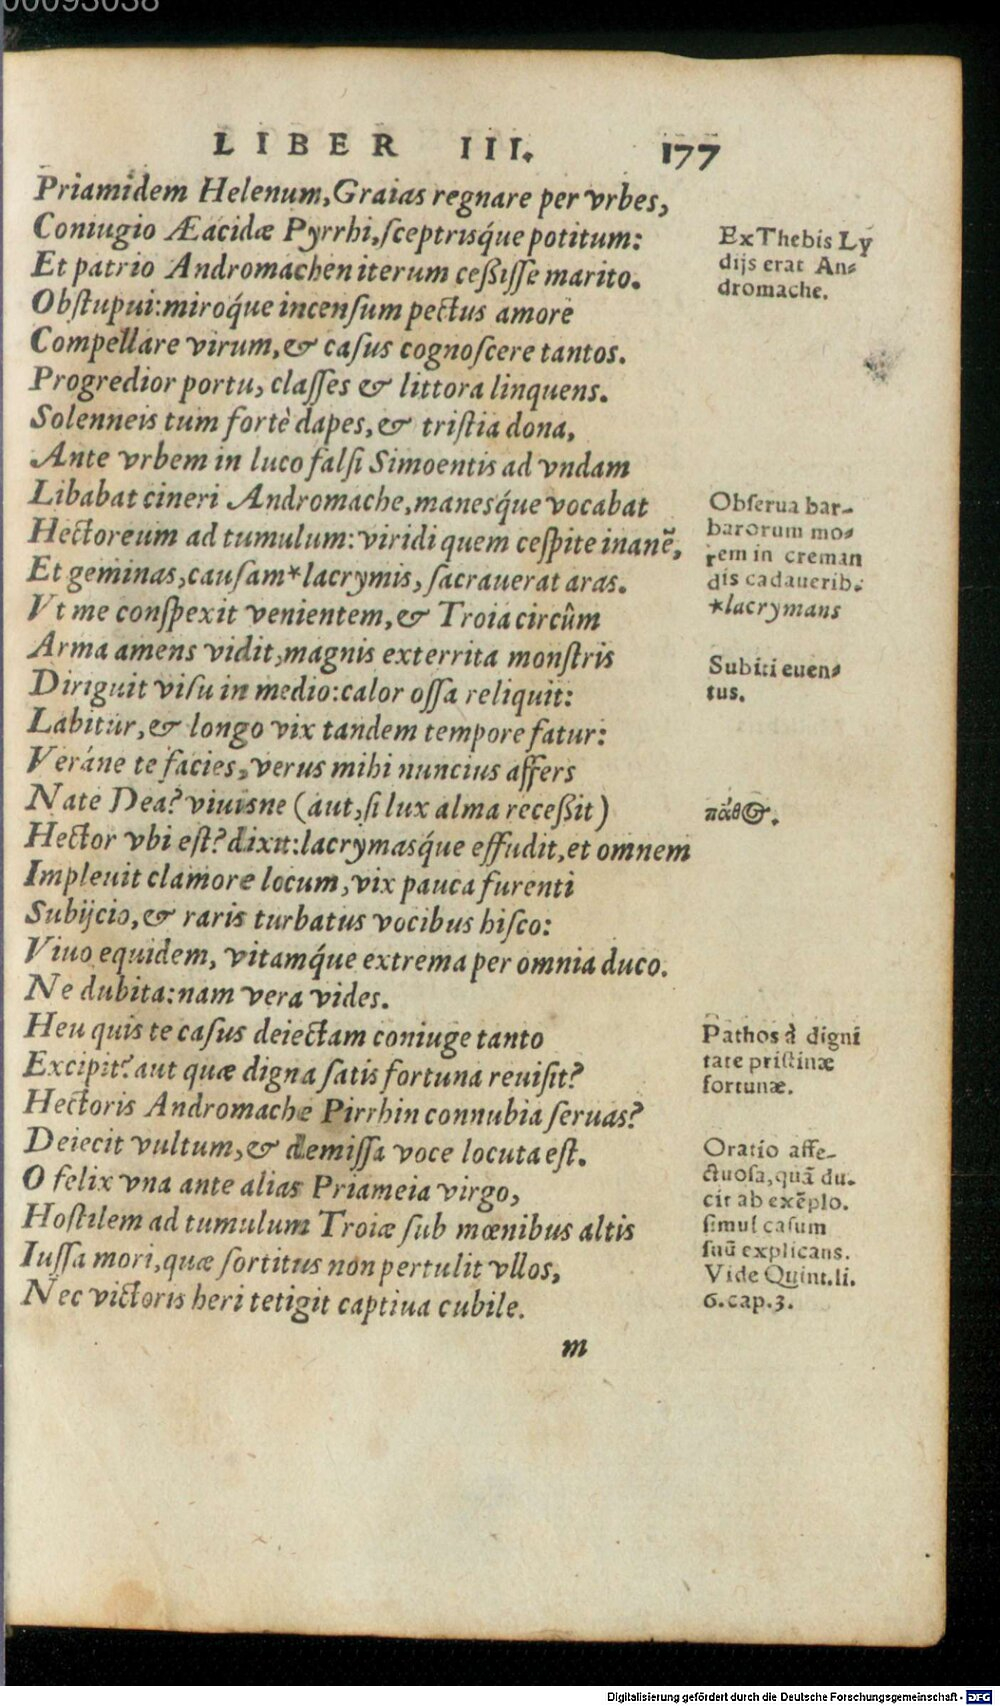 00093038
LIBER III. 177
Priamidem Helenum, Graias regnare per vrbes,
Coniugio Æacidæ Pyrrhi, ſceptrisq́ue potitum:
Et patrio Andromachen iterum ceßiſſe marito.
Obſtupui: miroq́ue incenſum pectus amore
Compellare virum, & caſus cognoſcere tantos.
Progredior portu, claſſes & littora linquens.
Solenneis tum fortè dapes, & triſtia dona,
Ante vrbem in luco falſi Simoentis ad vndam
Libabat cineri Andromache, manesq́ue vocabat
Hectoreum ad tumulum: viridi quem ceſpite inanẽ,
Et geminas, cauſam*lacrymis, ſacrauerat aras.
Vt me conſpexit venientem, & Troia circûm
Arma amens vidit, magnis exterrita monſtris
Diriguit viſu in medio: calor oſſa reliquit:
Labitur, & longo vix tandem tempore fatur:
Veráne te facies, verus mihi nuncius affers
Nate Dea? viuisne (aut, ſi lux alma receßit)
Hector vbi eſt? dixit: lacrymasq́ue effudit, et omnem
Impleuit clamore locum, vix pauca furenti
Subijcio, & raris turbatus vocibus hiſco:
Viuo equidem, vitamq́ue extrema per omnia duco.
Ne dubita: nam vera vides.
Heu quis te caſus deiectam coniuge tanto
Excipit? aut quæ digna ſatis fortuna reuiſit?
Hectoris Andromache Pirrhin connubia ſeruas?
Deiecit vultum, & demiſſa voce locuta eſt.
O felix vna ante alias Priameia virgo,
Hoſtilem ad tumulum Troiæ ſub mœnibus altis
Iuſſa mori, quæ ſortitus non pertulit vllos,
Nec victoris heri tetigit captiua cubile.
m
Ex Thebis Ly
dijs erat An-
dromache.
Obſerua bar-
barorum mo-
rem in creman
dis cadauerib.
*lacrymans
Subiti euen-
tus.
πάθος.
Pathos à digni
tate priſtinæ
fortunæ.
Oratio affe-
ctuoſa, quã du-
cit ab exẽplo.
ſimul caſum
ſuũ explicans.
Vide Quint.li.
6.cap.3.
Digitalisierung gefördert durch die Deutsche Forschungsgemeinschaft - DFG